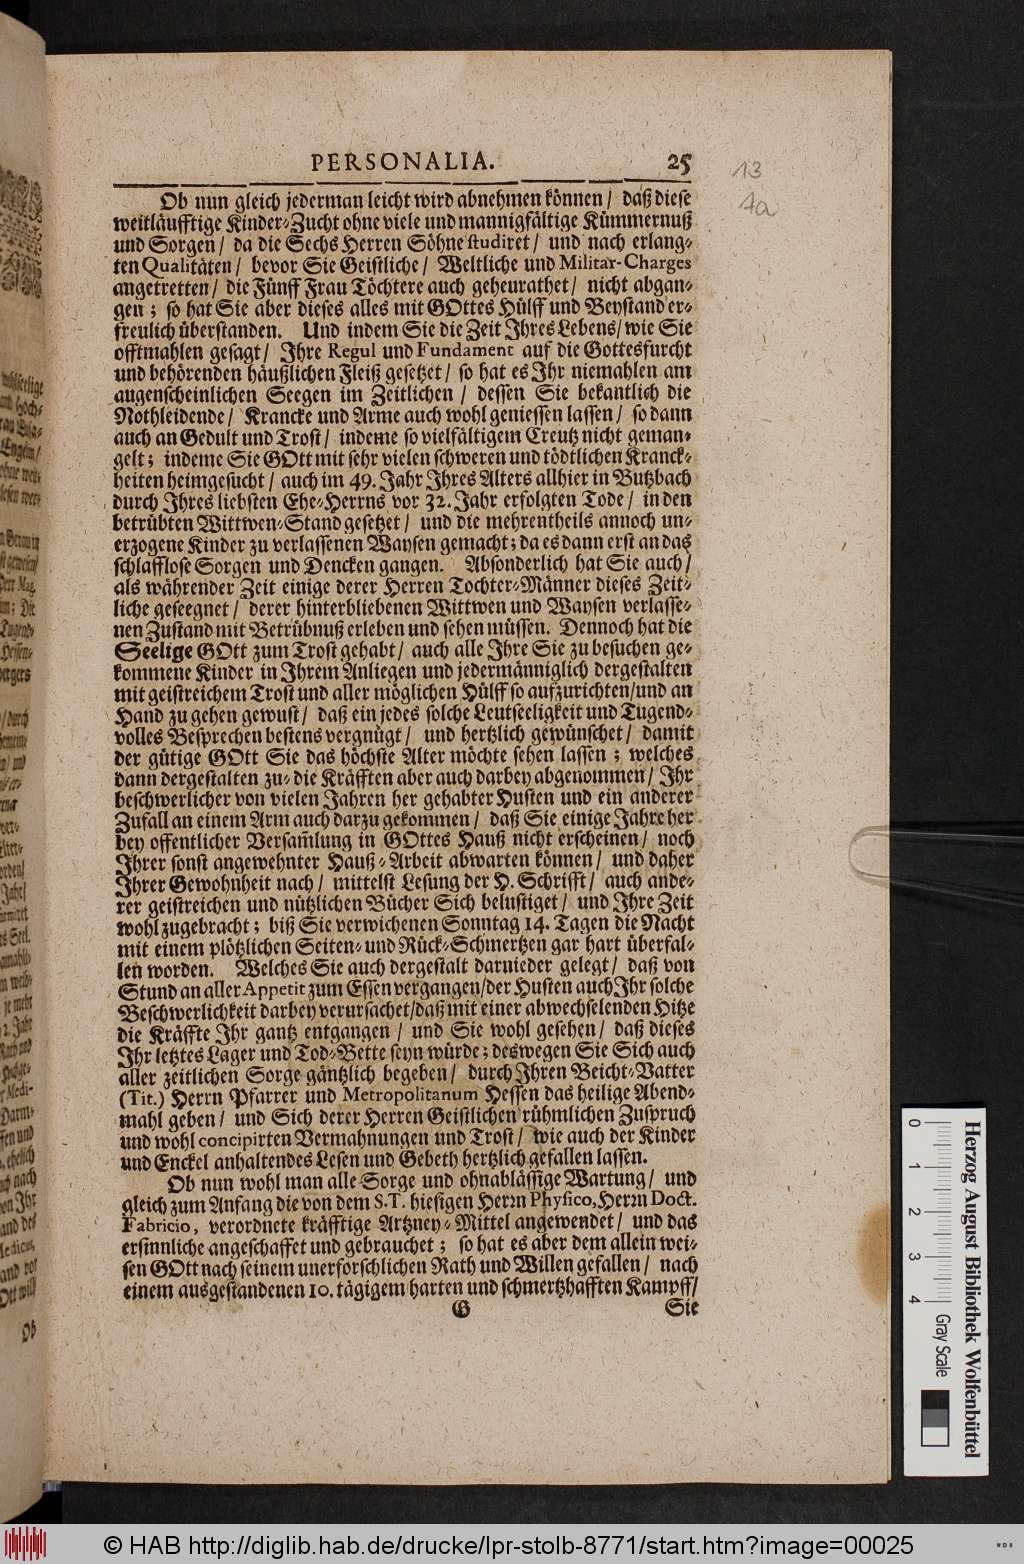 PERSONALIA. 25
Ob nun gleich jederman leicht wird abnehmen können / daß diese
weitläufftige Kinder-Zucht ohne viele und mannigfältige Kümmernuß
und Sorgen / da die Sechs Herren Söhne studiret / und nach erlang-
ten Qualitäten / bevor Sie Geistliche / Weltliche und Militar-Charges
angetretten / die Fünff Frau Töchtere auch geheurathet / nicht abgan-
gen ; so hat Sie aber dieses alles mit GOttes Hülff und Beystand er-
freulich überstanden. Und indem Sie die Zeit Ihres Lebens / wie Sie
offtmahlen gesagt / Ihre Regul und Fundament auf die Gottesfurcht
und behörenden häußlichen Fleiß gesetzet / so hat es Ihr niemahlen am
augenscheinlichen Seegen im Zeitlichen / dessen Sie bekantlich die
Nothleidende / Krancke und Arme auch wohl geniessen lassen / so dann
auch an Gedult und Trost / indeme so vielfältigem Creutz nicht geman-
gelt ; indeme Sie GOtt mit sehr vielen schweren und tödtlichen Kranck-
heiten heimgesucht / auch im 49. Jahr Ihres Alters allhier in Butzbach
durch Ihres liebsten Ehe-Herrns vor 32. Jahr erfolgten Tode / in den
betrübten Wittwen-Stand gesetzet / und die mehrentheils annoch un-
erzogene Kinder zu verlassenen Waysen gemacht ; da es dann erst an das
schlafflose Sorgen und Dencken gangen. Absonderlich hat Sie auch /
als währender Zeit einige derer Herren Tochter-Männer dieses Zeit-
liche geseegnet / derer hinterbliebenen Wittwen und Waysen verlasse-
nen Zustand mit Betrübnuß erleben und sehen müssen. Dennoch hat die
Seelige GOtt zum Trost gehabt / auch alle Ihre Sie zu besuchen ge-
kommene Kinder in Ihrem Anliegen und jedermänniglich dergestalten
mit geistreichem Trost und aller möglichen Hülff so aufzurichten / und an
Hand zu gehen gewust / daß ein jedes solche Leutseeligkeit und Tugend-
volles Besprechen bestens vergnügt / und hertzlich gewünschet / damit
der gütige GOtt Sie das höchste Alter möchte sehen lassen ; welches
dann dergestalten zu- die Kräfften aber auch darbey abgenommen / Ihr
beschwerlicher von vielen Jahren her gehabter Husten und ein anderer
Zufall an einem Arm auch darzu gekommen / daß Sie einige Jahre her
bey offentlicher Versam̃lung in GOttes Hauß nicht erscheinen / noch
Ihrer sonst angewehnter Hauß-Arbeit abwarten können / und daher
Ihrer Gewohnheit nach / mittelst Lesung der H. Schrifft / auch ande-
rer geistreichen und nützlichen Bücher Sich belustiget / und Ihre Zeit
wohl zugebracht ; biß Sie verwichenen Sonntag 14. Tagen die Nacht
mit einem plötzlichen Seiten- und Rück-Schmertzen gar hart überfal-
len worden. Welches Sie auch dergestalt darnieder gelegt / daß von
Stund an aller Appetit zum Essen vergangen / der Husten auch Ihr solche
Beschwerlichkeit darbey verursachet / daß mit einer abwechselenden Hitze
die Kräffte Ihr gantz entgangen / und Sie wohl gesehen / daß dieses
Ihr letztes Lager und Tod-Bette seyn würde ; deswegen Sie Sich auch
aller zeitlichen Sorge gäntzlich begeben / durch Ihren Beicht-Vatter
(Tit.) Herrn Pfarrer und Metropolitanum Hessen das heilige Abend-
mahl geben / und Sich derer Herren Geistlichen rühmlichen Zuspruch
und wohl concipirten Vermahnungen und Trost / wie auch der Kinder
und Enckel anhaltendes Lesen und Gebeth hertzlich gefallen lassen.
Ob nun wohl man alle Sorge und ohnablässige Wartung / und
gleich zum Anfang die von dem S.T. hiesigen Herrn Physico, Herrn Doct.
Fabricio, verordnete kräfftige Artzney-Mittel angewendet / und das
ersinnliche angeschaffet und gebrauchet ; so hat es aber dem allein wei-
sen GOtt nach seinem unerforschlichen Rath und Willen gefallen / nach
einem ausgestandenen 10. tägigem harten und schmertzhafften Kampff /
G Sie
13
4a
Herzog August Bibliothek Wolfenbüttel
0 1 2 3 4 Gray Scale
© HAB http://diglib.hab.de/drucke/lpr-stolb-8771/start.htm?image=00025